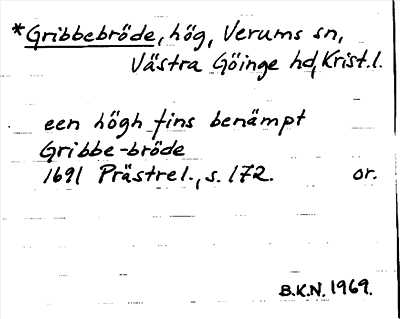 *Gribbebröde, hög, Verums sn,
Västra Göinge hd, Krist. l.
een högh fins benämpt
Gribbe-bröde
1691 Prästrel., s. 172. or.
B.K.N. 1969.